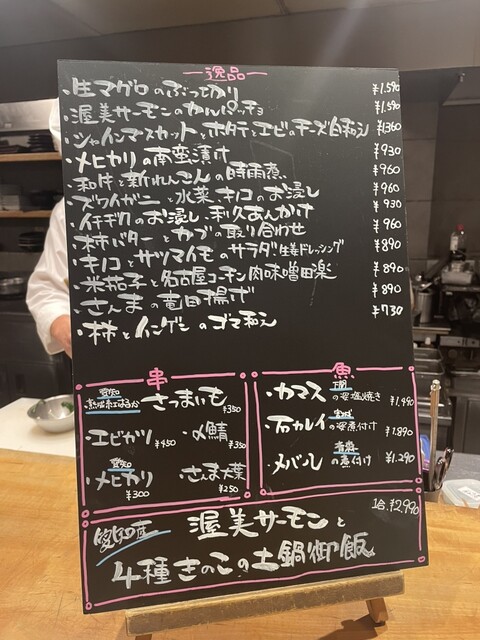 逸品
・生マグロのぶつ切り ¥1.590
・渥美サーモンのカルパッチョ ¥1.590
・シャインマスカットとホタテとエビのチーズ白和え ¥1360
・メヒカリの南蛮漬け ¥930
・和牛と新れんこんの時雨煮 ¥960
・ズワイガニと水菜、キノコのお浸し ¥960
・イチヂクのお浸し、利久あんかけ ¥930
・柿バターとカブの取り合わせ ¥960
・キノコとサツマイモのサラダ 生姜ドレッシング ¥890
・米茄子と名古屋コーチン肉味噌田楽 ¥890
・さんまの竜田揚げ ¥890
・柿とインゲンのゴマ和え ¥730
串
愛知
・熟成紅はるか さつまいも ¥350
・エビカツ ¥450
・〆鯖 ¥350
愛知
・メヒカリ ¥300
・さんま大葉 ¥250
魚
・カマスの塩焼き ¥1,490
・石カレイの煮付け ¥1.890
青森
・メバルの煮付け ¥1.290
愛知産 渥美サーモンと 1合.¥2,990
4種きのこの土鍋御飯